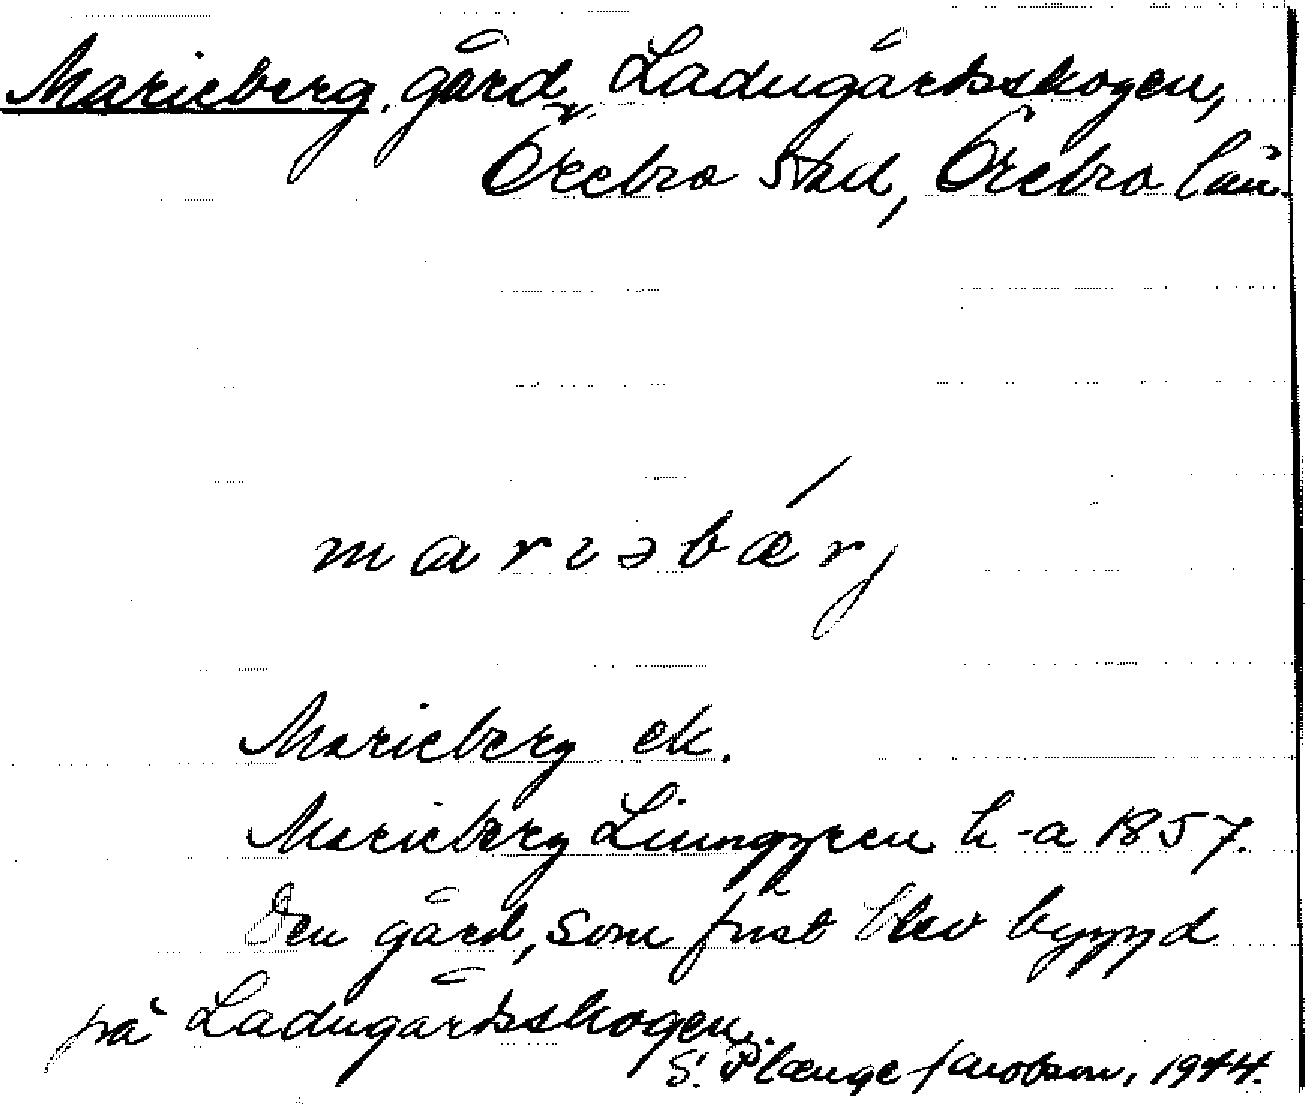 Marieberg, gård, Ladugårdsskogen,
Örebro stad, Örebro län.
mariəbǽrj
Marieberg ek.
Marieberg Ljunggren h-a 1857.
Den gård, som först blev byggd
på Ladugårdsskogen.
S. Plænge Jacobson, 1944.